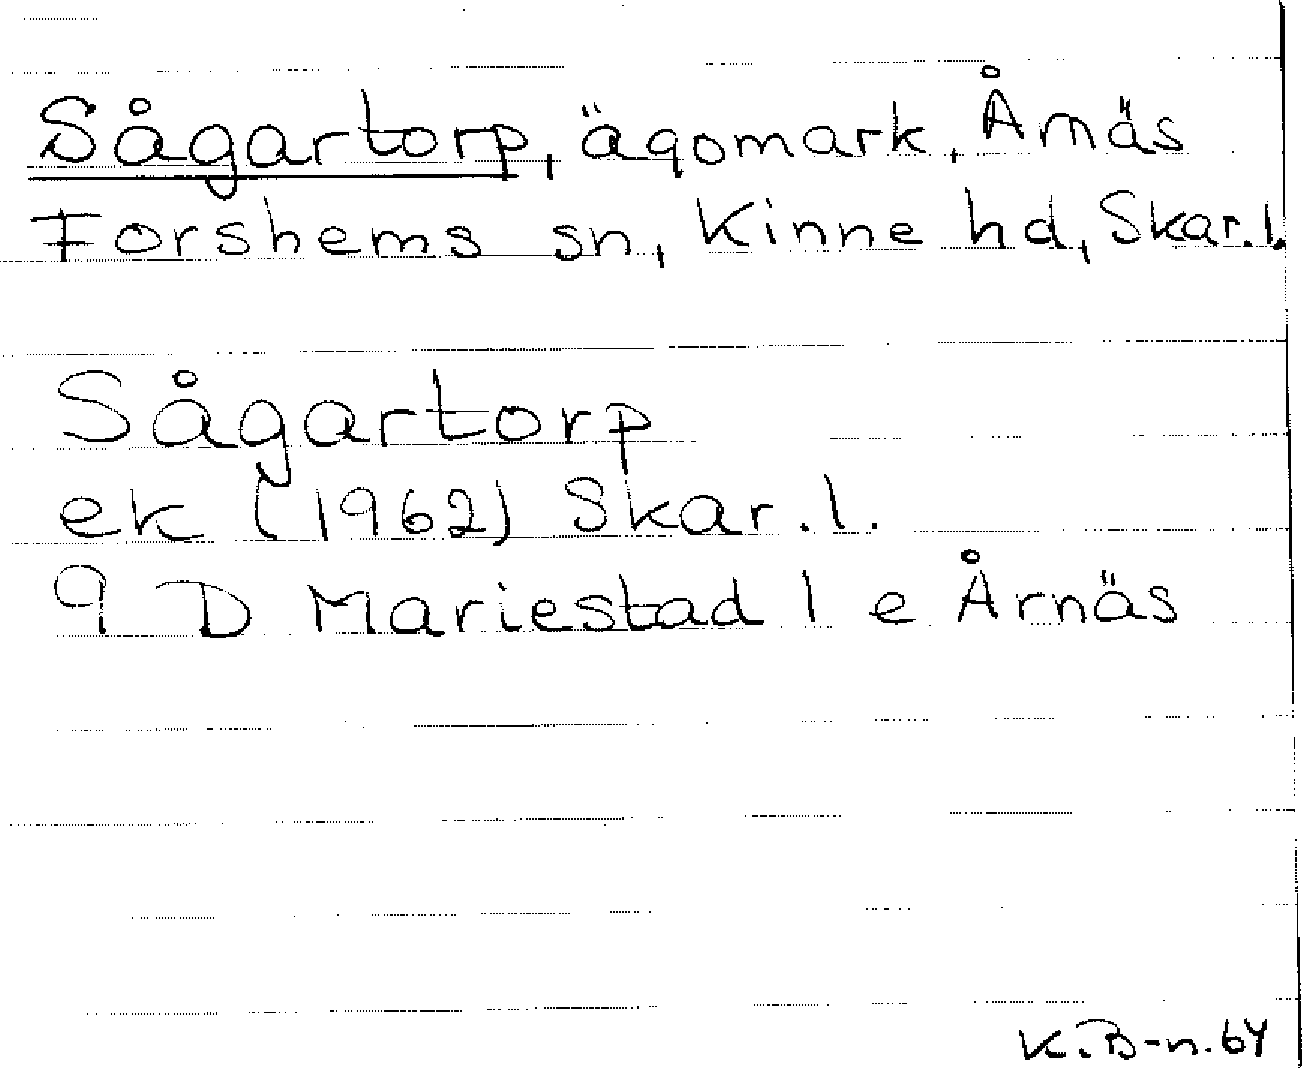 Sågartorp, ägomark, Årnäs
Forshems sn, Kinne hd, Skar.l.
Sågartorp
ek (1962) Skar.l.
9 D Mariestad l e Årnäs
K.B-n.64